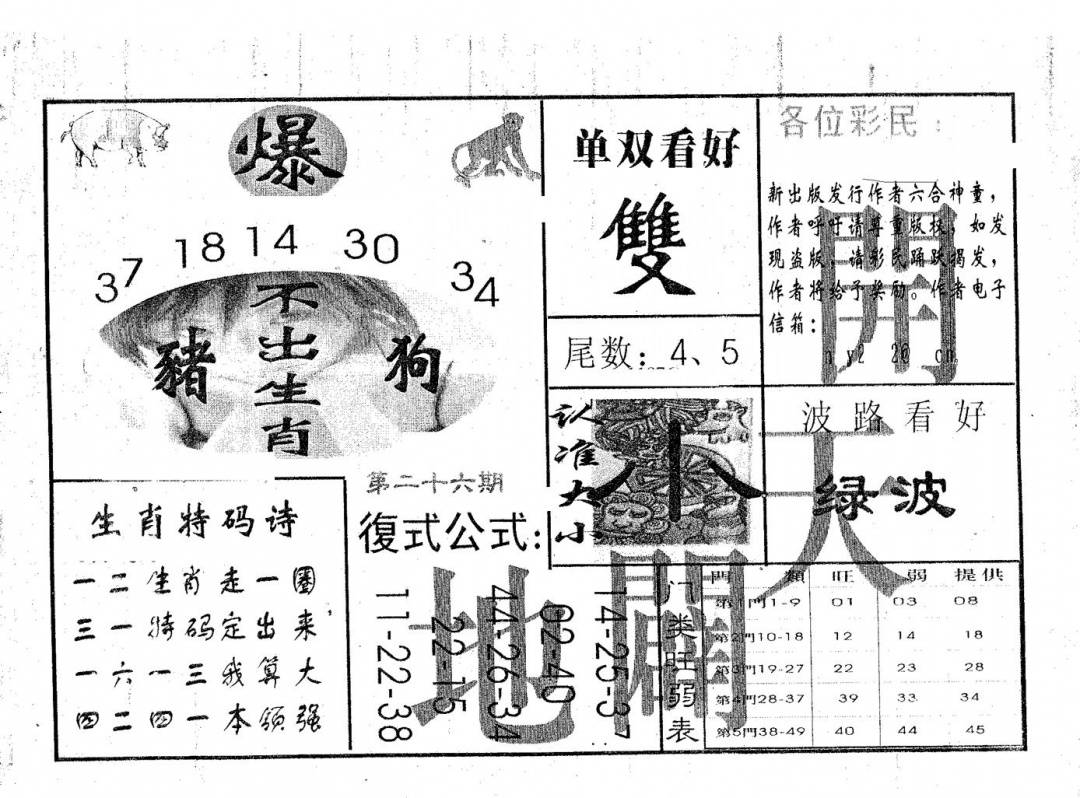 爆
37 18 14 30 34
不出生肖
豬
狗
单双看好
雙
尾数：4、5
各位彩民：
新出版发行作者六合神童，
作者呼吁请尊重版权，如发
现盗版，请彩民踊跃揭发，
作者将给予奖励。作者电子
信箱：
開
认准大小
小
波路看好
绿波
天
第二十六期
復式公式：
11-22-38
22-15
44-26-34
02-40
14-25-37
地
闢
生肖特码诗
一二生肖走一圈
三一特码定出来，
一六一三我算大
四二四一本领强
门类旺弱表
門類 旺 弱 提供
第1門1-9 01 03 08
第2門10-18 12 14 18
第3門19-27 22 23 28
第4門28-37 39 33 34
第5門38-49 40 44 45